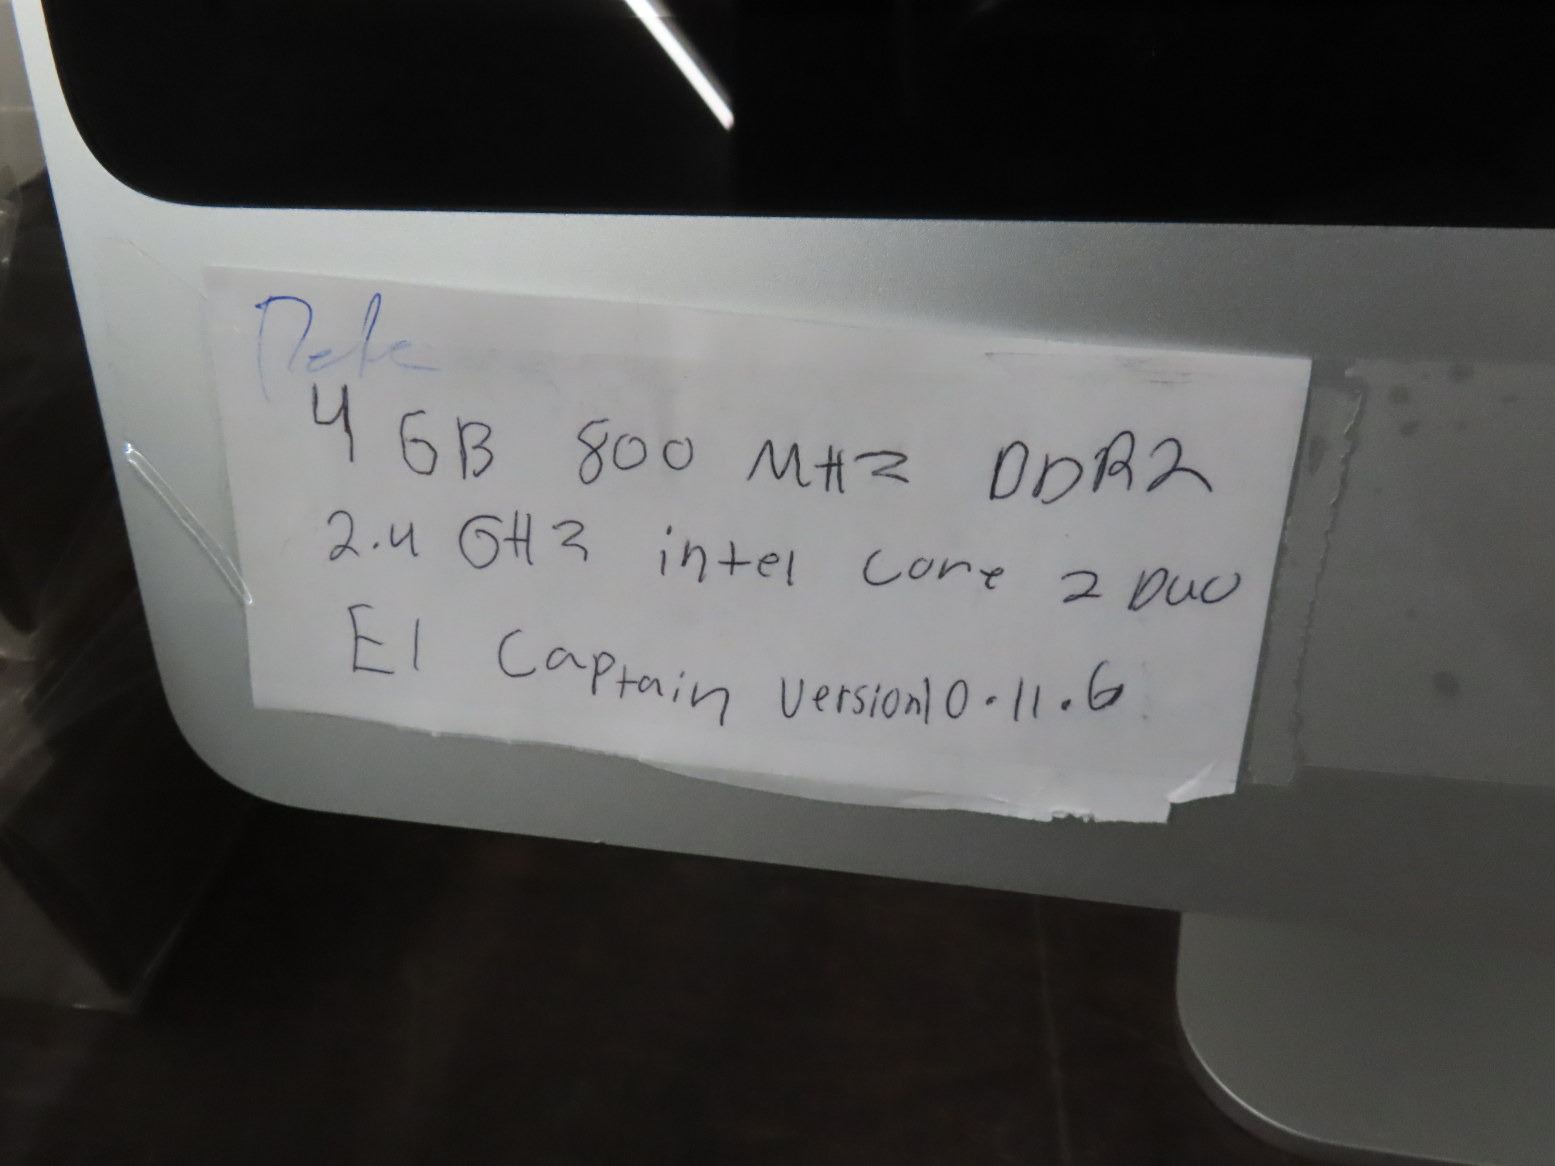 4 GB 800 MHz DDR2
2.4 GHz intel core 2 DUO
El Captain version 10.11.6